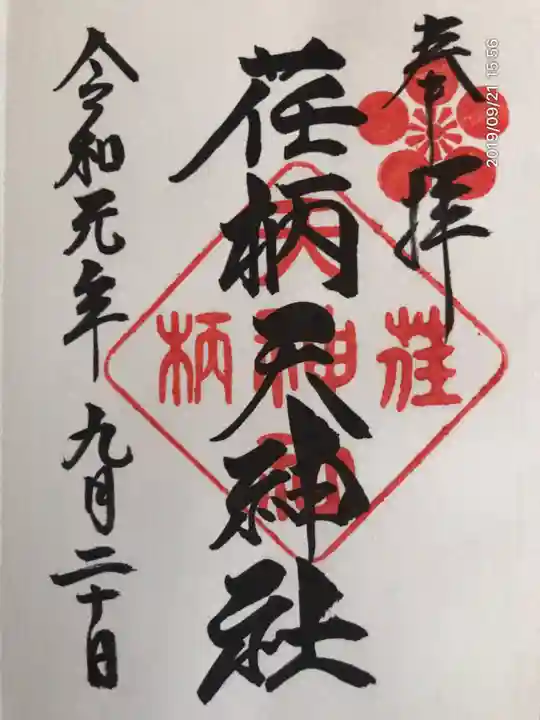 奉拝
荏柄天神社
令和元年九月二十日
荏
柄
天
神
社
2019/09/21 15:56